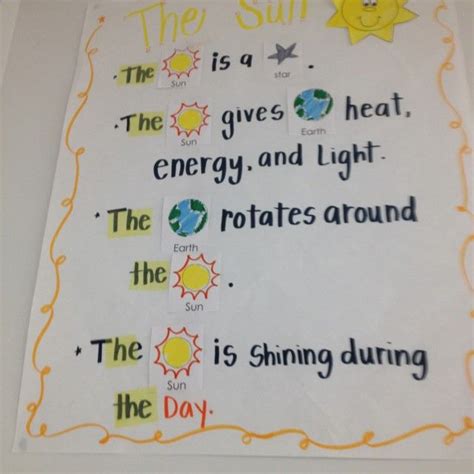 The Sun
· The Sun is a star.
· The Sun gives Earth heat,
energy, and Light.
· The Earth rotates around
the Sun.
· The Sun is Shining during
the Day.